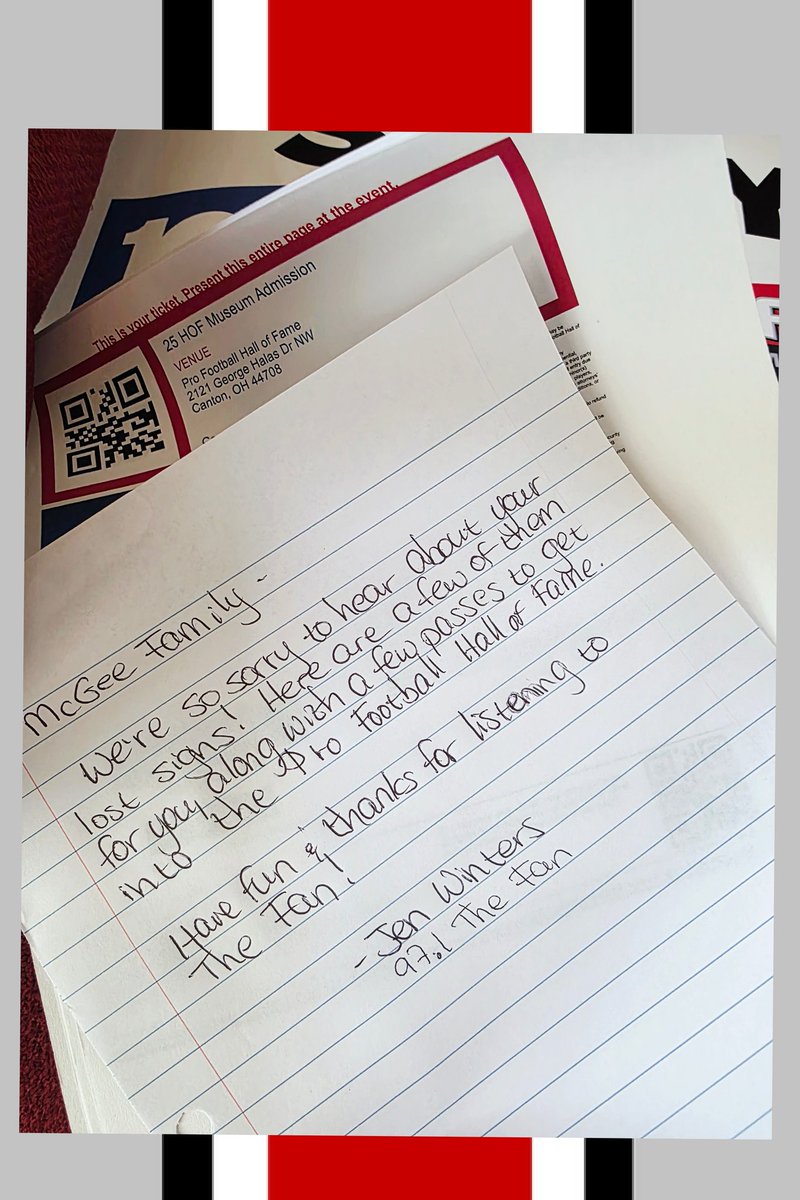 This is your ticket. Present this entire page at the event.
25 HOF Museum Admission
VENUE
Pro Football Hall of Fame
2121 George Halas Dr NW
Canton, OH 44708
McGee Family -
We're so sorry to hear about your
lost signs! Here are a few of them
for you, along with a few passes to get
into the Pro Football Hall of Fame.
Have fun & thanks for listening to
The Fan!
- Jen Winters
97.1 The Fan